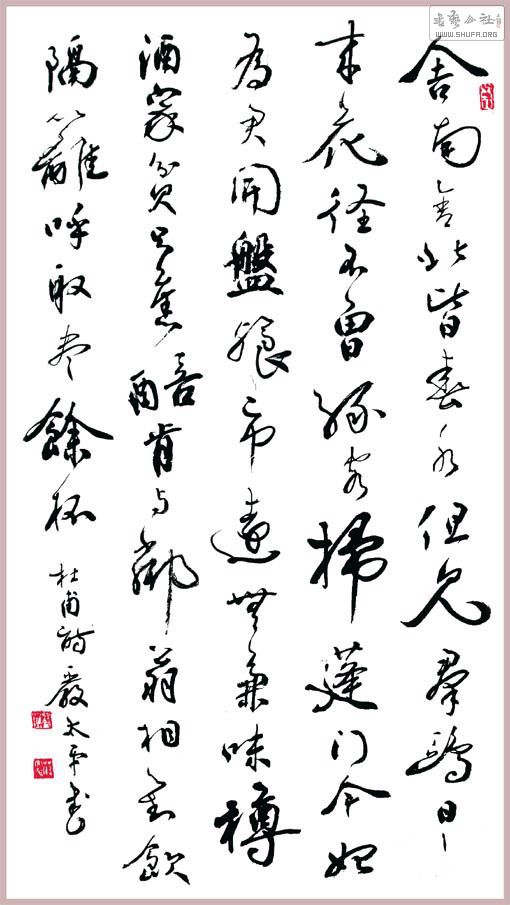 書藝公社
WWW.SHUFA.ORG
舍南舍北皆春水但見羣鷗日々
来花径不曾緣客掃蓬门今始
為君開盤飧市遠無兼味樽
酒家貧只舊醅肯与鄰翁相對飲
隔籬呼取尽餘杯
杜甫詩嚴太平书